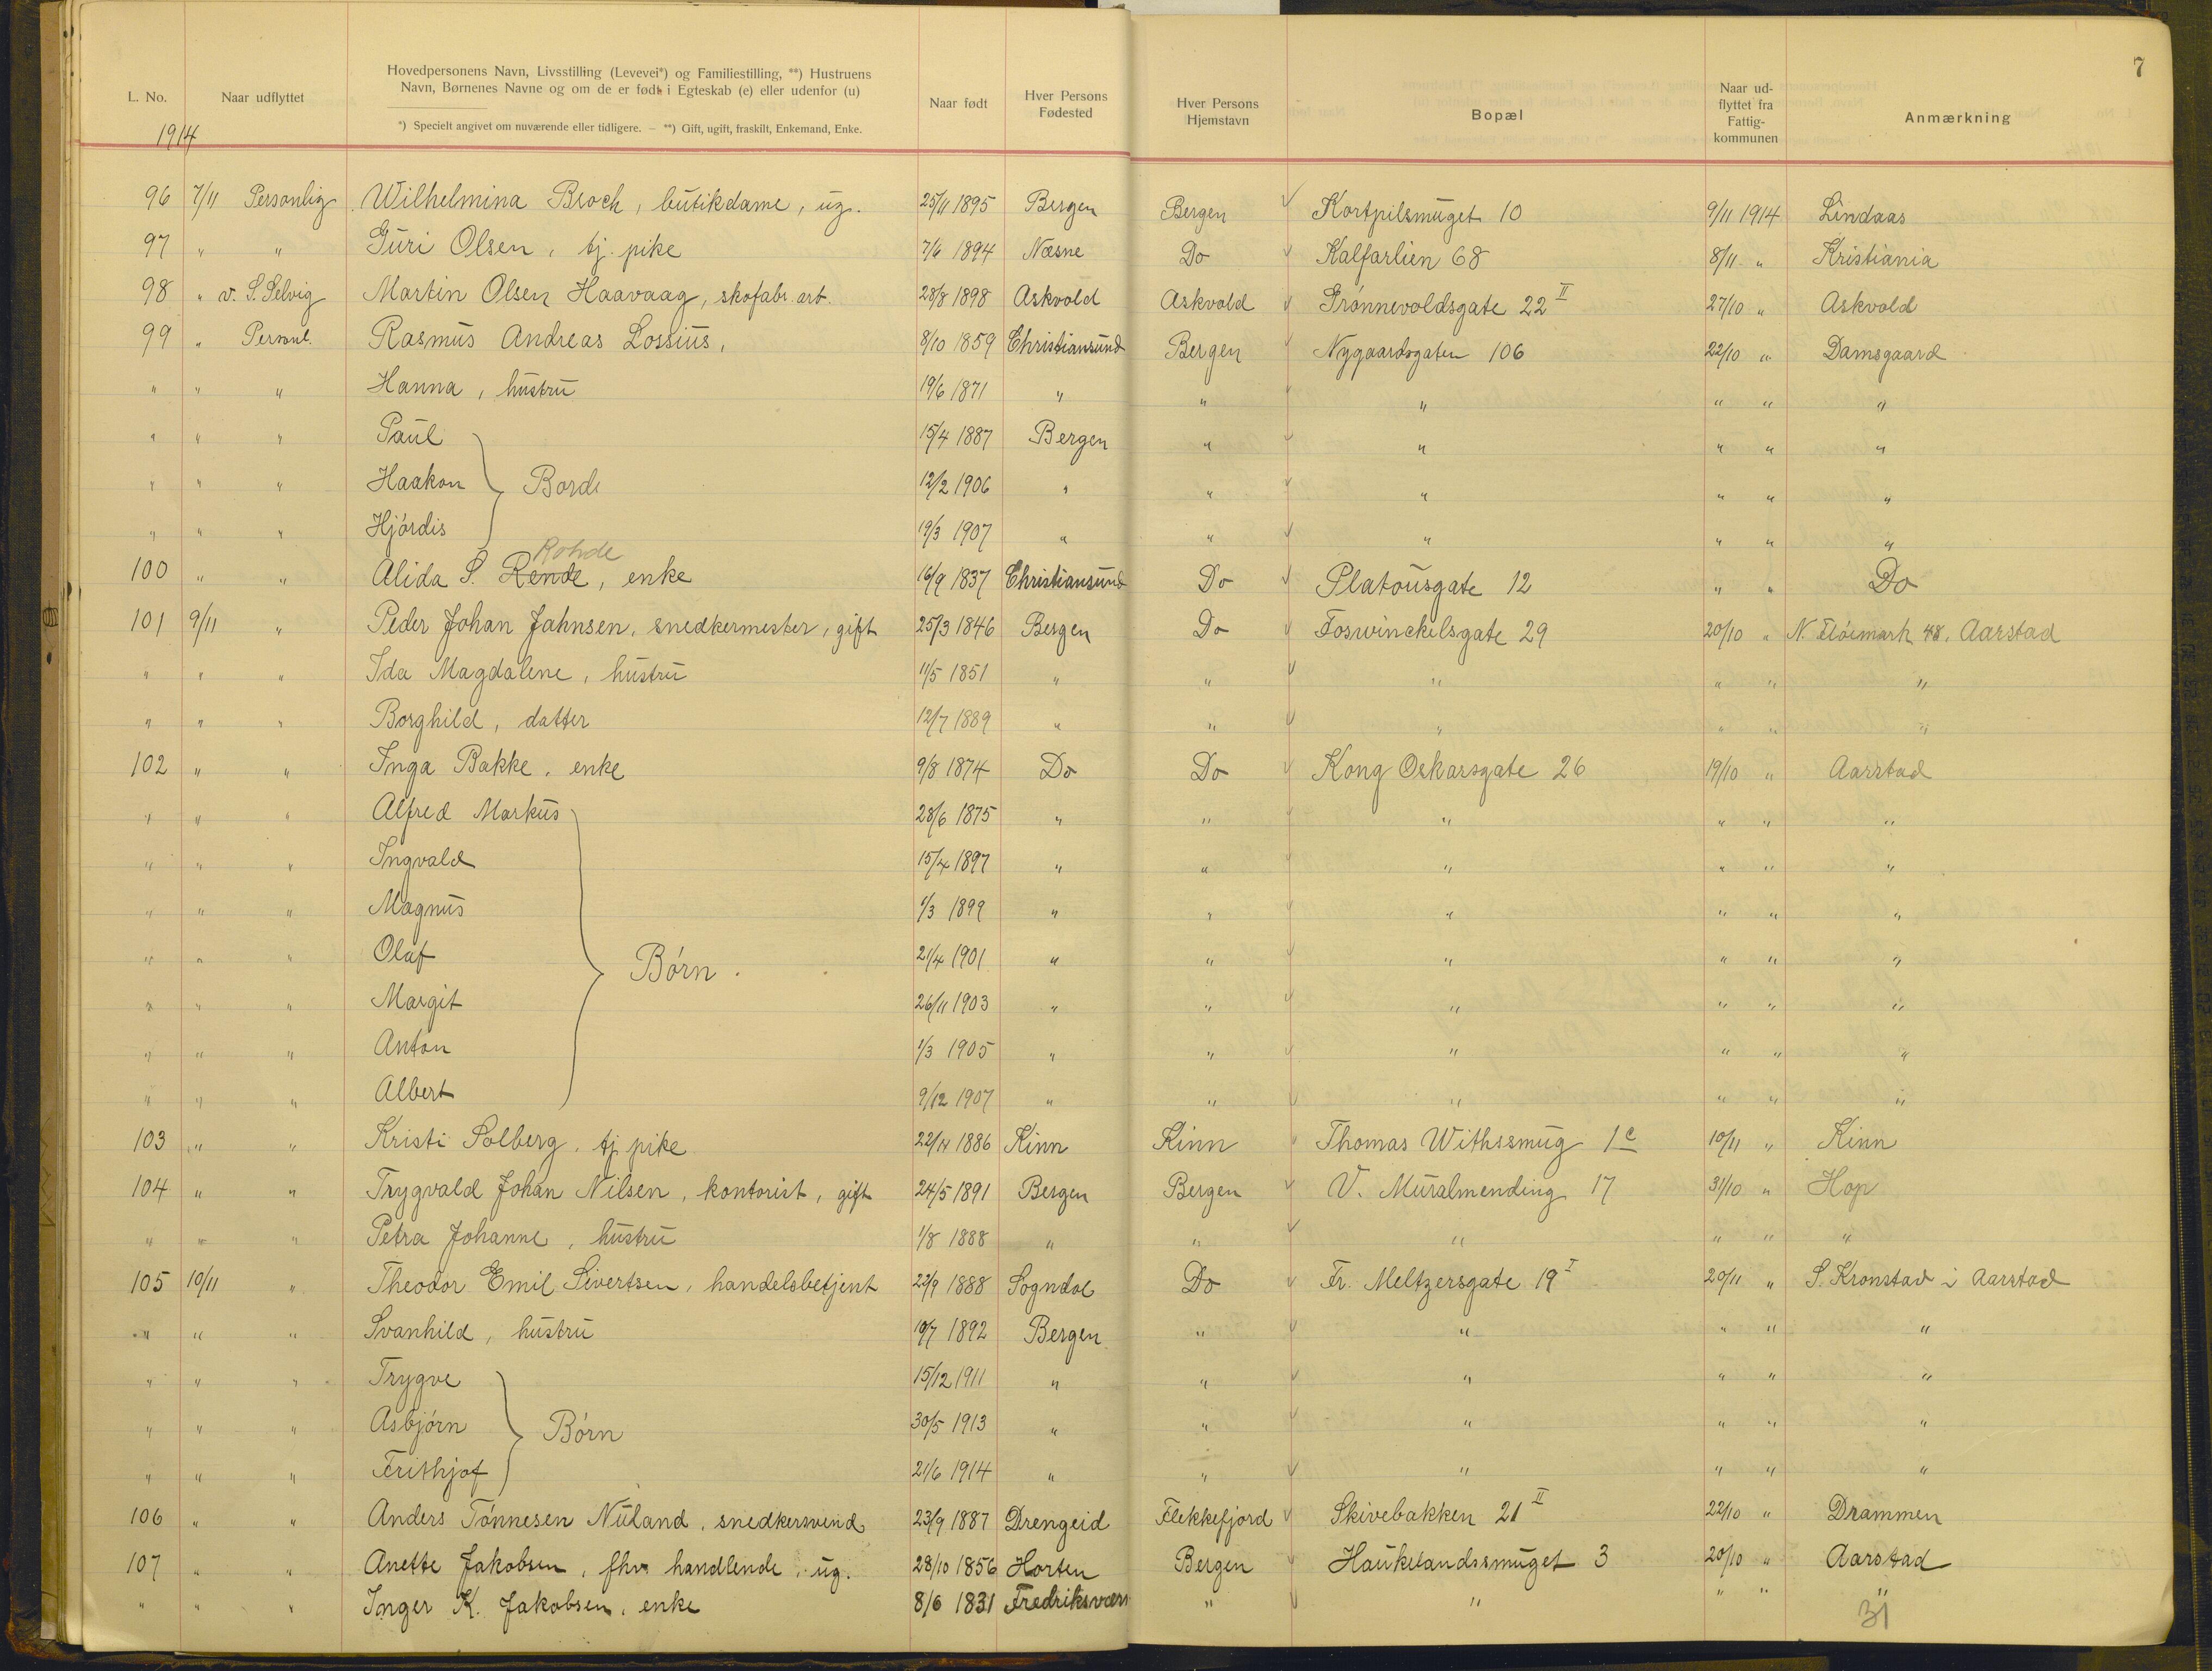 7
L. No. Naar udflyttet Hovedpersonens Navn, Livsstilling (Levevei*) og Familiestilling, **) Hustruens Navn, Børnenes Navne og om de er født i Egteskab (e) eller udenfor (u) Naar født Hver Persons Fødested Hver Persons Hjemstavn Bopæl Naar udflyttet fra Fattigkommunen Anmærkning
*) Specielt angivet om nuværende eller tidligere. — **) Gift, ugift, fraskilt, Enkemand, Enke.
1914
96 7/11 Personlig Wilhelmina Broch, butikdame, ug. 25/11 1895 Bergen Bergen √ Kortpilsmuget 10 9/11 1914 Lindaas
97 " " Guri Olsen, tj. pike 7/6 1894 Næsne Do √ Kalfarlien 68 8/11 " Kristiania
98 " v. S. Selvig Martin Olsen Haavaag, skofabr. arb. 28/8 1898 Askvold Askvold √ Grønnevoldsgate 22 II 27/10 " Askvold
99 " Personl. Rasmus Andreas Lossius, 8/10 1859 Christiansund Bergen √ Nygaardsgaten 106 22/10 " Damsgaard
" " " Hanna, hustru 19/6 1871 " " √ " " " "
" " " Paul 15/4 1887 Bergen " √ " " " "
" " " Haakon } Børde 12/2 1906 " " √ " " " "
" " " Hjørdis 19/3 1907 " " √ " " " "
Rohde
100 " " Alida S. Rende, enke 16/9 1837 Christiansund Do √ Platousgate 12 " " Do
101 9/11 " Peder Johan Jahnsen, snedkermester, gift 25/3 1846 Bergen Do √ Foswinckelsgate 29 20/10 " N. Fløemark 48, Aarstad
" " " Ida Magdalene, hustru 11/5 1851 " " √ " " " "
" " " Borghild, datter 12/7 1889 " " √ " " " "
102 " " Inga Bakke, enke 9/8 1874 Do Do √ Kong Oskarsgate 26 19/10 " Aarstad
" " " Alfred Markus 28/6 1875 " " √ " " " "
" " " Ingvald 15/4 1897 " " √ " " " "
" " " Magnus 1/3 1899 " " √ " " " "
" " " Olaf } Børn. 21/4 1901 " " √ " " " "
" " " Margit 26/11 1903 " " √ " " " "
" " " Anton 1/3 1905 " " √ " " " "
" " " Albert 9/12 1907 " " √ " " " "
103 " " Kristi Solberg, tj. pike 22/4 1886 Kinn Kinn √ Thomas Withssmug 1c 10/11 " Kinn
104 " " Trygvald Johan Nilsen, kontorist, gift 24/5 1891 Bergen Bergen √ V. Muralmending 17 31/10 " Hop
" " " Petra Johanne, hustru 1/8 1888 " " √ " " " "
105 10/11 " Theodor Emil Sivertsen, handelsbetjent 22/9 1888 Sogndal Do √ Fr. Meltzersgate 19 I 20/11 " S. Kronstad i Aarstad
" " " Svanhild, hustru 10/7 1892 Bergen " √ " " " "
" " " Trygve 15/12 1911 " " √ " " " "
" " " Asbjørn } Børn 30/5 1913 " " √ " " " "
" " " Frithjof 21/6 1914 " " √ " " " "
106 " " Anders Tønnesen Nuland, snedkersvend 23/9 1887 Drengeid Flekkefjord √ Skivebakken 21 II 22/10 " Drammen
107 " " Anette Jakobsen, fhv. handlende, ug. 28/10 1856 Horten Bergen √ Haukelandssmuget 3 20/10 " Aarstad
" " " Inger K. Jakobsen, enke 8/6 1831 Fredriksværn " √ " " " "
31